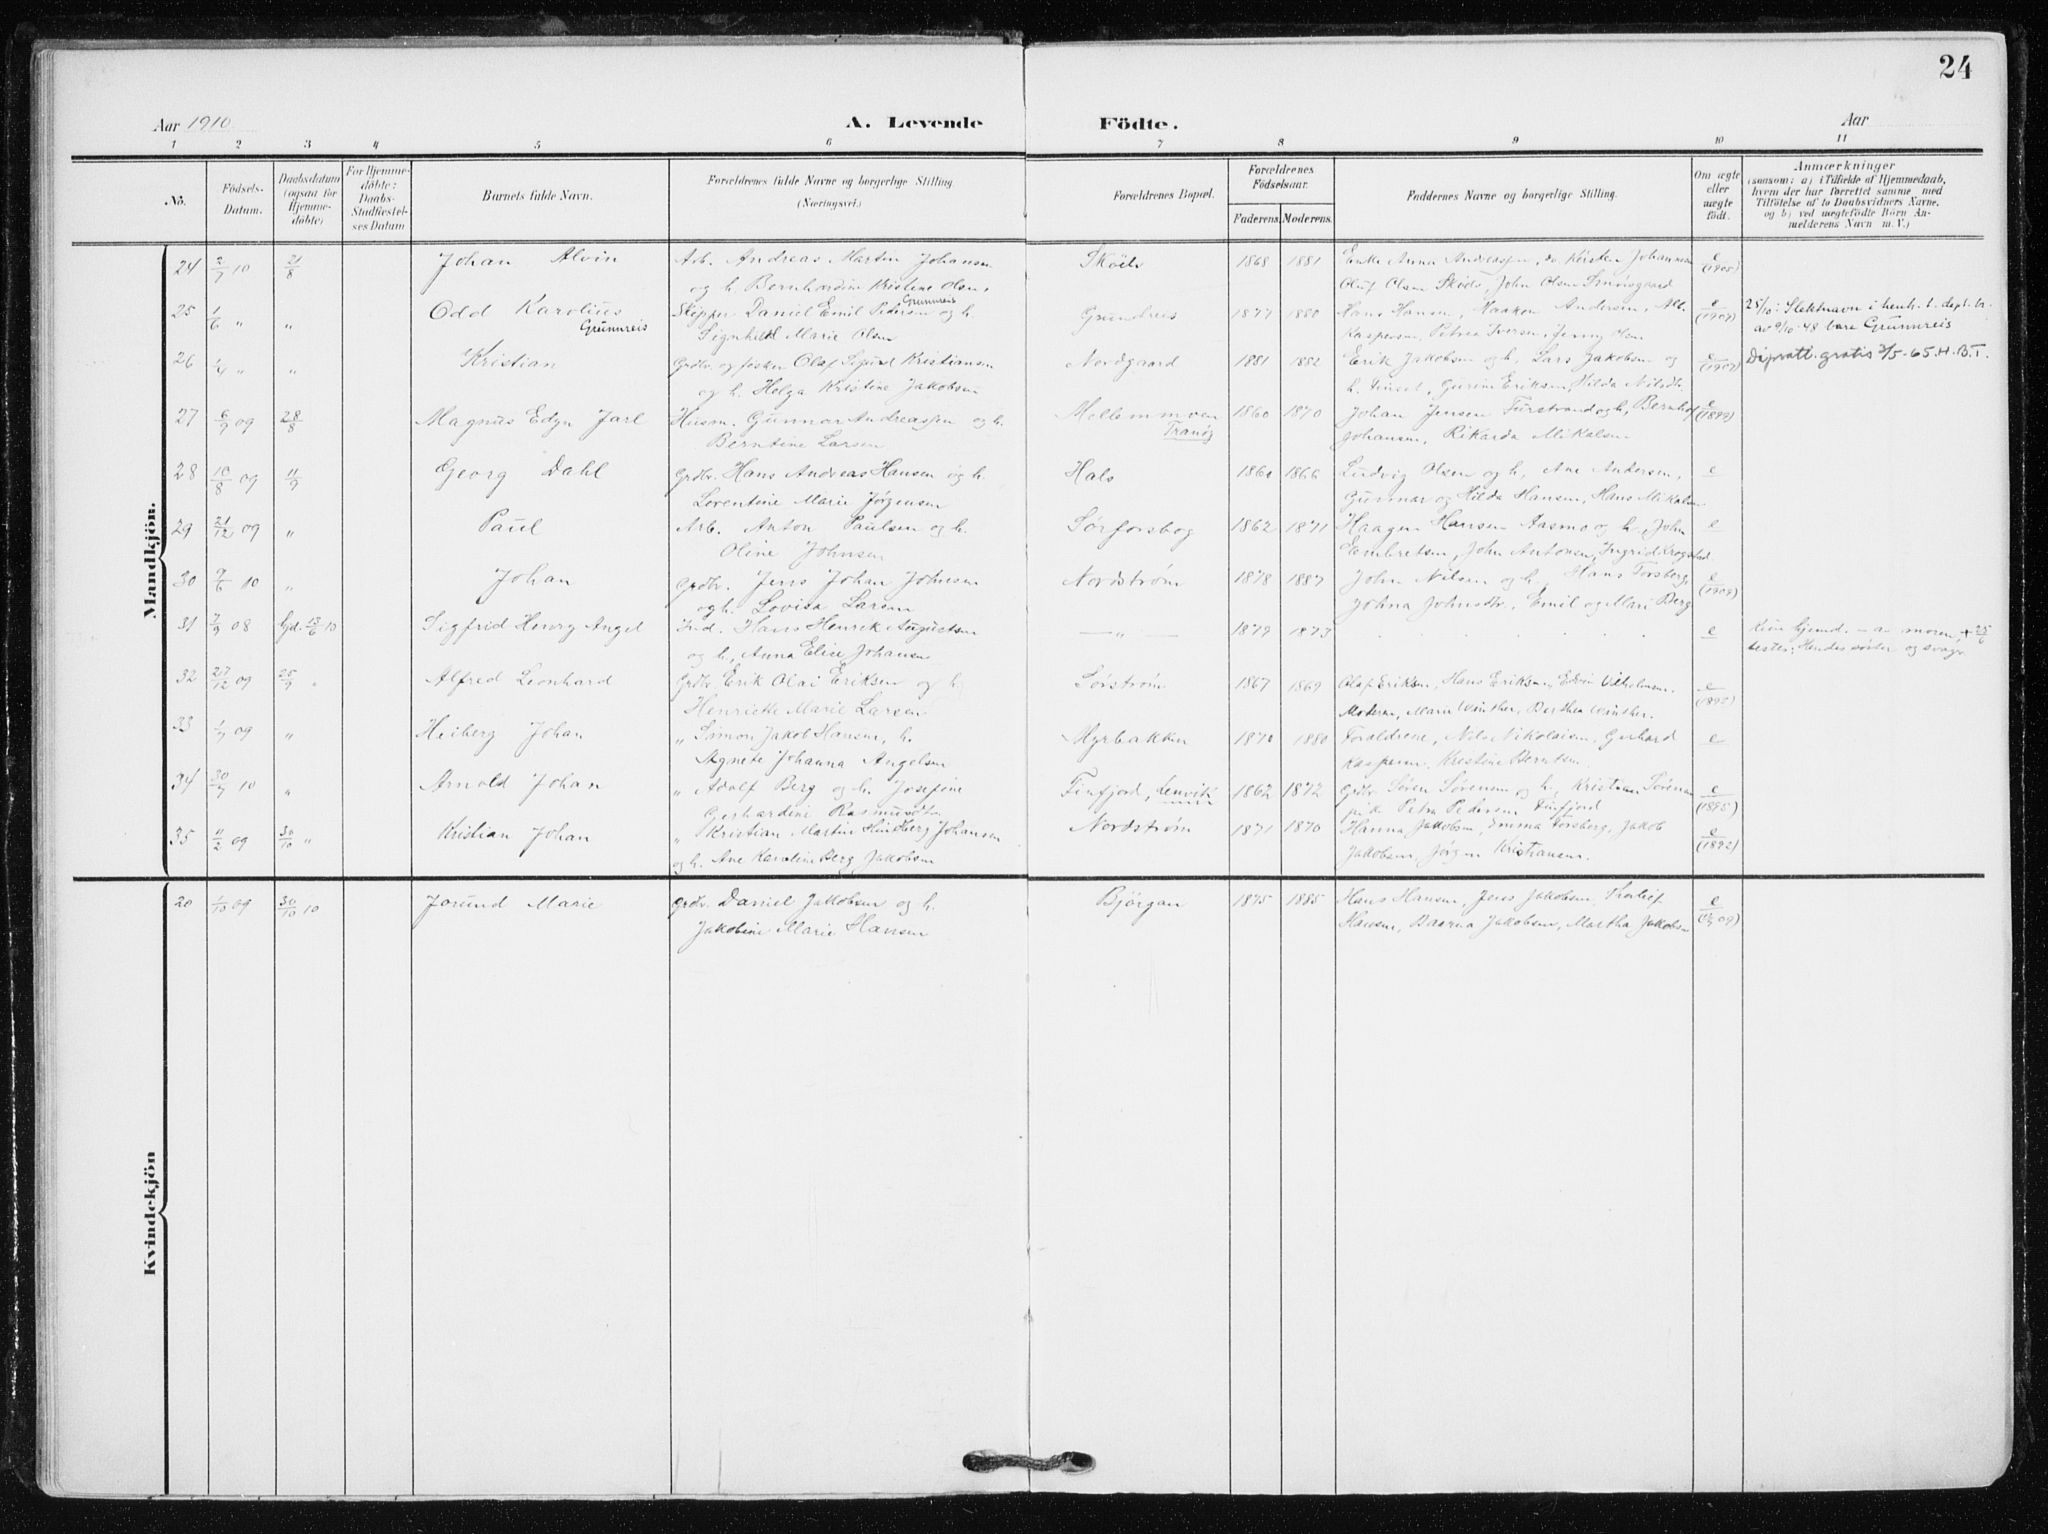 24
Aar 1910
A. Levende Födte.
Aar
1 2 3 4 5 6 7 8 9 10 11
No.
Födsels-Datum.
Daabsdatum (ogsaa for Hjemme-döbte)
For Hjemme-döbte: Daabs-Stadfæstel-ses Datum
Barnets fulde Navn.
Forældrenes fulde Navne og borgerlige Stilling. (Næringsvei.)
Forældrenes Bopæl.
Forældrenes Födselsaar.
Faderens. Moderens.
Faddernes Navne og borgerlige Stilling.
Om ægte eller uægte født.
Anmærkninger
(saasom: a) i Tilfælde af Hjemmedaab,
hvem der har forrettet samme med
Tilföielse af to Daabsvidners Navne,
og b) ved uægtefödte Börn An-
melderens Navn m. V.)
Mandkjön.
24 2/7 10 21/8 Johan Alvin Arb. Andreas Martin Johansen Sköelv 1868 1881 Enke Anna Andreassen, Kristen Johannesen e
og h. Bernhardine Kristine Olsen Oluf Olsen Sköelv, John Olsen (1905)
25 1/6 " " Odd Karolius Skipper Daniel Emil Pedersen Grunnreis og h. Grundreis 1877 1880 Hans Hansen, Haakon Andersen, Alb. e 25/10: Slektnavn i henh. t. dept. br.
Grunnreis Signhild Marie Olsen Kaspersen, Petrea Iversen, Jenny Olsen (1907) av 9/10-48 bare Grunnreis
26 1/4 " " Kristian Grdbr. og fisker Olaf Sigurd Kristiansen Nordgaard 1881 1882 Erik Jakobsen og h. Lars Jakobsen og e Dipratt. gratis 3/5-65. H.B.T.
og h. Helga Kristine Jakobsen h. Guren Eriksen, Hilda Nilsdtr. (1907)
27 6/9 09 28/8 Magnus Edyn Jarl Husm. Gunnar Andreassen og h. Mellemmoen 1860 1870 Johan Jensen Furstrand og h., Bernhof e
Berntine Larsen Tranöy Johansen, Rikarda Mikalsen (1899)
28 10/8 09 11/9 Georg Dahl Grdbr. Hans Andreas Hansen og h. Hals 1860 1866 Ludvig Olsen og h., Ane Andersen, e
Lorentine Marie Jørgensen Gunnar og Hilda Hansen, Hans Mikalsen
29 21/12 09 " Paul Arb. Anton Paulsen og h. Sørforsbog 1862 1871 Haagen Hansen Aasmo og h., John e
Oline Johnsen Lambretsen, John Antonsen, Ingrid Krogstad
30 9/6 10 " Johan Grdbr. Jens Johan Johnsen Nordstrøm 1878 1887 John Nilsen og h., Hans Forsberg, e
og h. Lovisa Larsen Johna Johnsdtr. Emil og Mari Berg (1909)
31 7/9 08 hjd. 13/6 10 Sigfrid Henry Angel Ind. Hans Henrik Augustsen — " — 1879 1873 e Kun hjemd. – a moren, + 25/6
og h. Anna Elise Johansen tester: Hendes søster og svoger
32 27/12 09 25/9 " Alfred Leonhard Grdbr. Erik Olai Eriksen og h. Sørstrøm 1867 1869 Olaf Eriksen, Hans Eriksen, Edvin Vilhelmsen. e
Henriette Marie Larsen Moderen, Marie Winther, Berthea Winther. (1892)
33 1/7 09 " Heiberg Johan " Simon Jakob Hansen, h. Myrbakken 1870 1880 Foraldrene, Nils Nikolaisen, Gerhard e
Agnete Johanna Angelsen Kaspersen, Kristine Berntsen
34 30/7 10 " Arnold Johan " Adolf Berg og h. Josefine Finfjord, Lenvik 1862 1872 Grdbr. Sören Sörensen og h., Kristian Sörensen e
Gerhardine Rasmusdtr. pik. Petra Pedersen Finfjord (1895)
35 11/2 09 30/10 " Kristian Johan " Kristian Martin Johansen Nordstrøm 1871 1870 Hanna Jakobsen, Emma Forsberg, Jakob e
og h. Ane Karoline Berg Jakobsen Jakobsen, Jørgen Kristiansen. (1892)
Kvindekjön
20 1/10 09 30/10 10 Jorund Marie Grdbr. Daniel Jakobsen og h. Björgan 1875 1885 Hans Hansen, Jens Jakobsen, Thorleif e
Jakobine Marie Hansen Hansen, Jakobsen, Martha Jakobsen